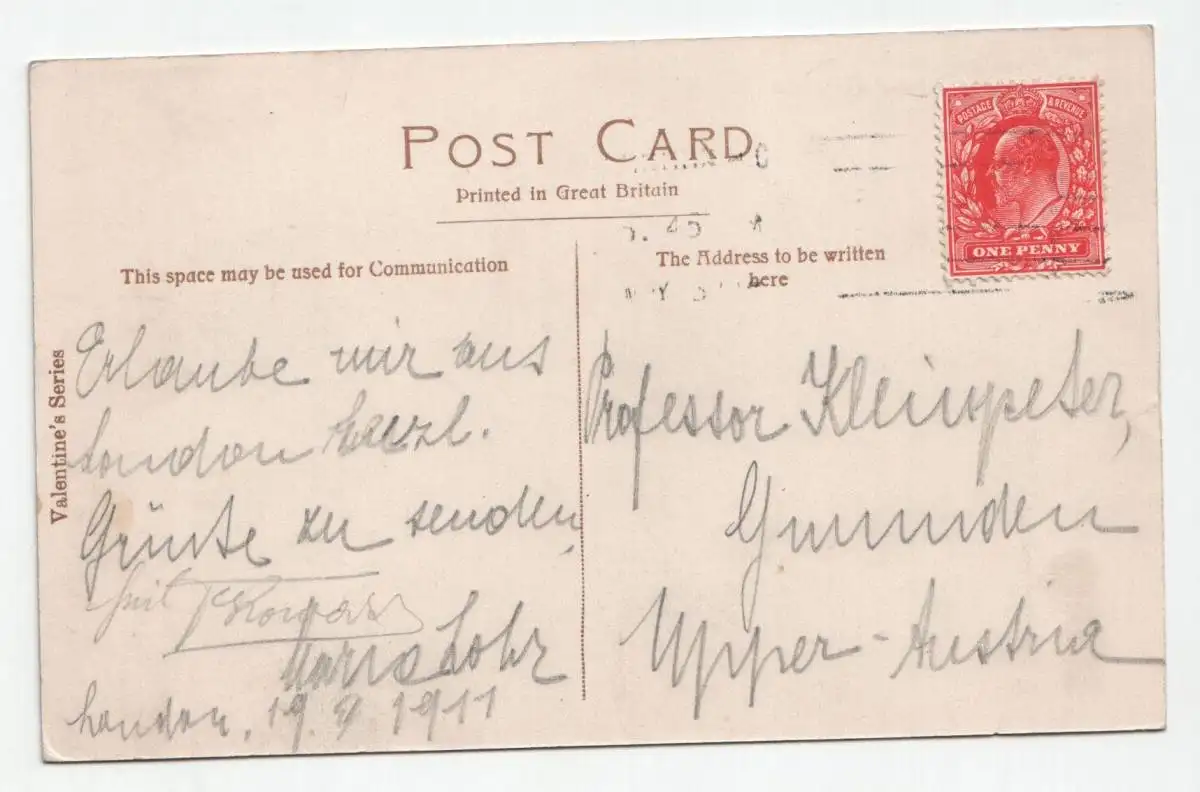 POST CARD
Printed in Great Britain
This space may be used for Communication
The Address to be written
here
Valentine's Series
POSTAGE & REVENUE
ONE PENNY
5.45
Erlaube mir aus
London herzl.
Grüße zu senden
Maria Lohr
London, 19. 1911
Professor Kleinpeter,
Gmunden
Upper-Austria